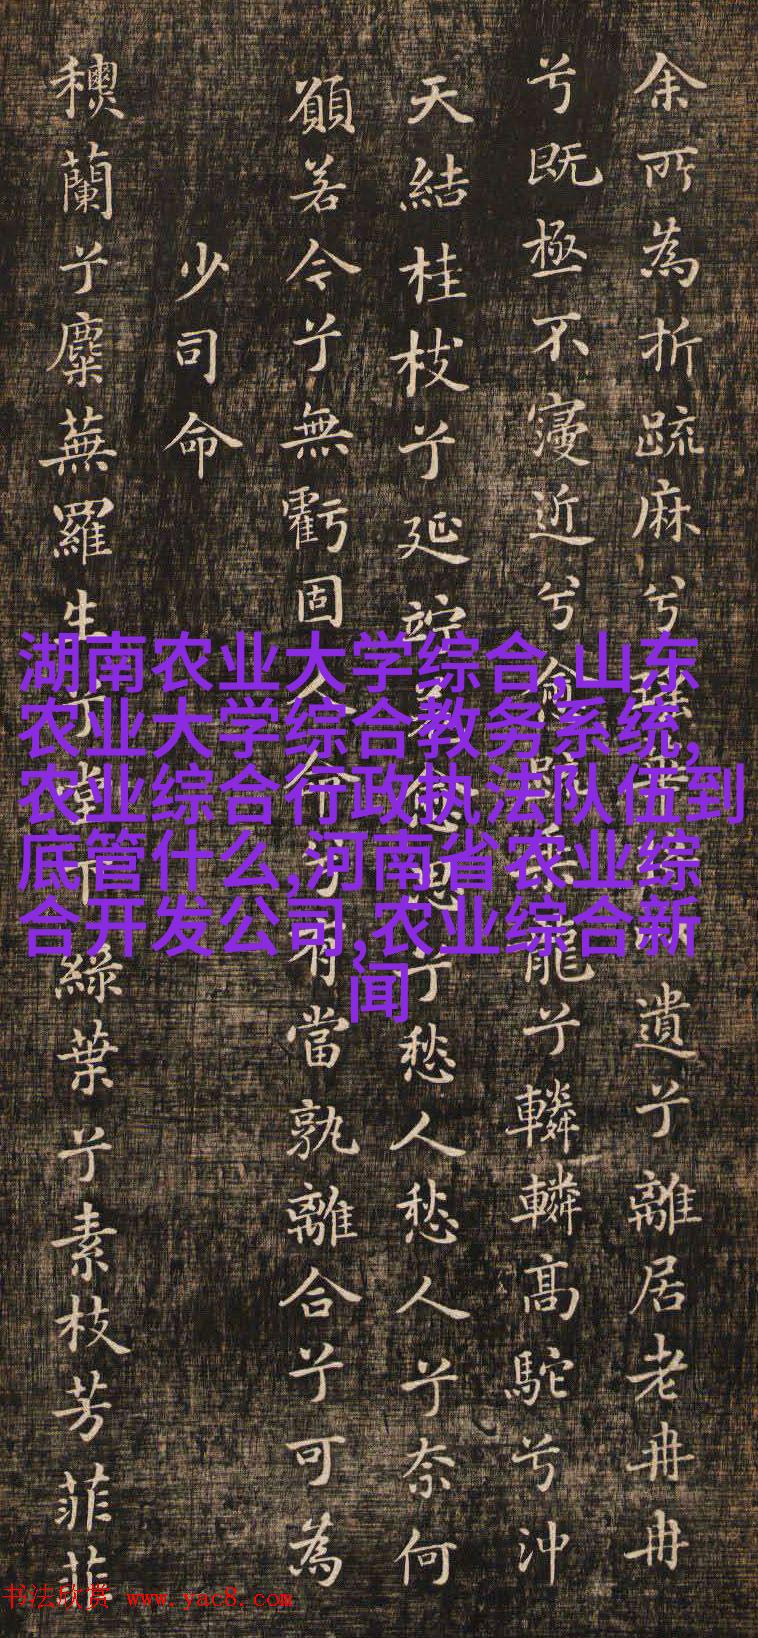 余所為折疏麻兮遺兮離居老冉冉
兮既極不寖近兮愈疏乘龍兮轔轔高駝兮沖
天結桂枝兮延竚羌愈思兮愁人愁人兮奈何
願若今兮無虧固人命兮有當孰離合兮可為
少司命
蘭兮麋蕪羅生兮堂下綠葉兮素枝芳菲菲
湖南农业大学综合,山东
农业大学综合教务系统,
农业综合行政执法队伍到
底管什么,河南省农业综
合开发公司,农业综合新
闻
书法欣赏 www.yac8.com